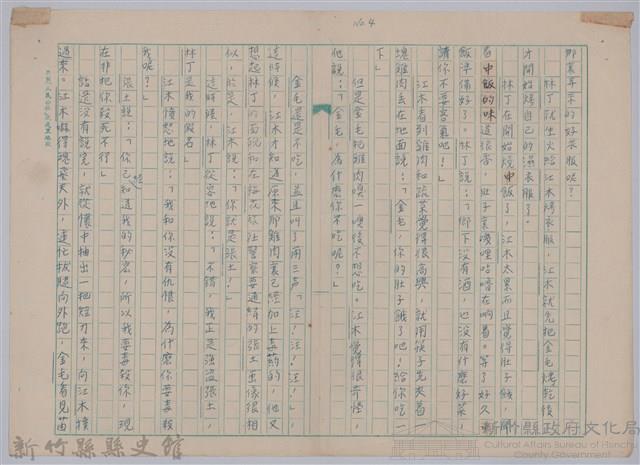 No.4
那裏弄來的好衣服呢?
林丁就生火給江木烤衣服,江木就先把金毛烤乾後
才開始烤自己的濕衣服了。
林丁在開始燒中飯了,江木太累而且覺得肚子餓,聞
着中飯的味道很香,肚子裏
飯準備好了。林丁說:「鄉下沒有酒,也沒有什麼好菜,
請你不要客氣吧!」
江木看到雞肉和蔬菜覺得很高興,就用筷子先夾着一
塊雞肉丟在地面說:「金毛,你的肚子餓了吧!給你吃一
下」
但是金毛把雞肉嗅一嗅後不想吃。江木覺得很奇怪,
他說:「金毛,為什麼你不吃呢?」
金毛還是不吃,並且叫了兩三聲「汪!汪!汪!」,
這時候,江木才知道原來那雞肉裏已經加上毒藥的,他又
想起林丁的面貌和在
似,於是,江木說:「你就是張土!」
這時候,林丁從容地說:「不錯,我正是強盜張土,
林丁是我的假名」
江木憤怒地說:「我和你沒有仇恨,為什麼你要毒殺
我呢?」
張土說:「你已經知道我的秘密,所以我要毒殺你,現
在非把你殺死不行」
話還沒有說完,就從懷中抽出一把短刀來,向江木撲
過來。江木嚇得魂飛天外,連忙拔腿向外跑,金毛看見苗
新竹縣縣史館
新竹縣政府文化局
Cultural Affairs Bureau of Hsinchu
County Government